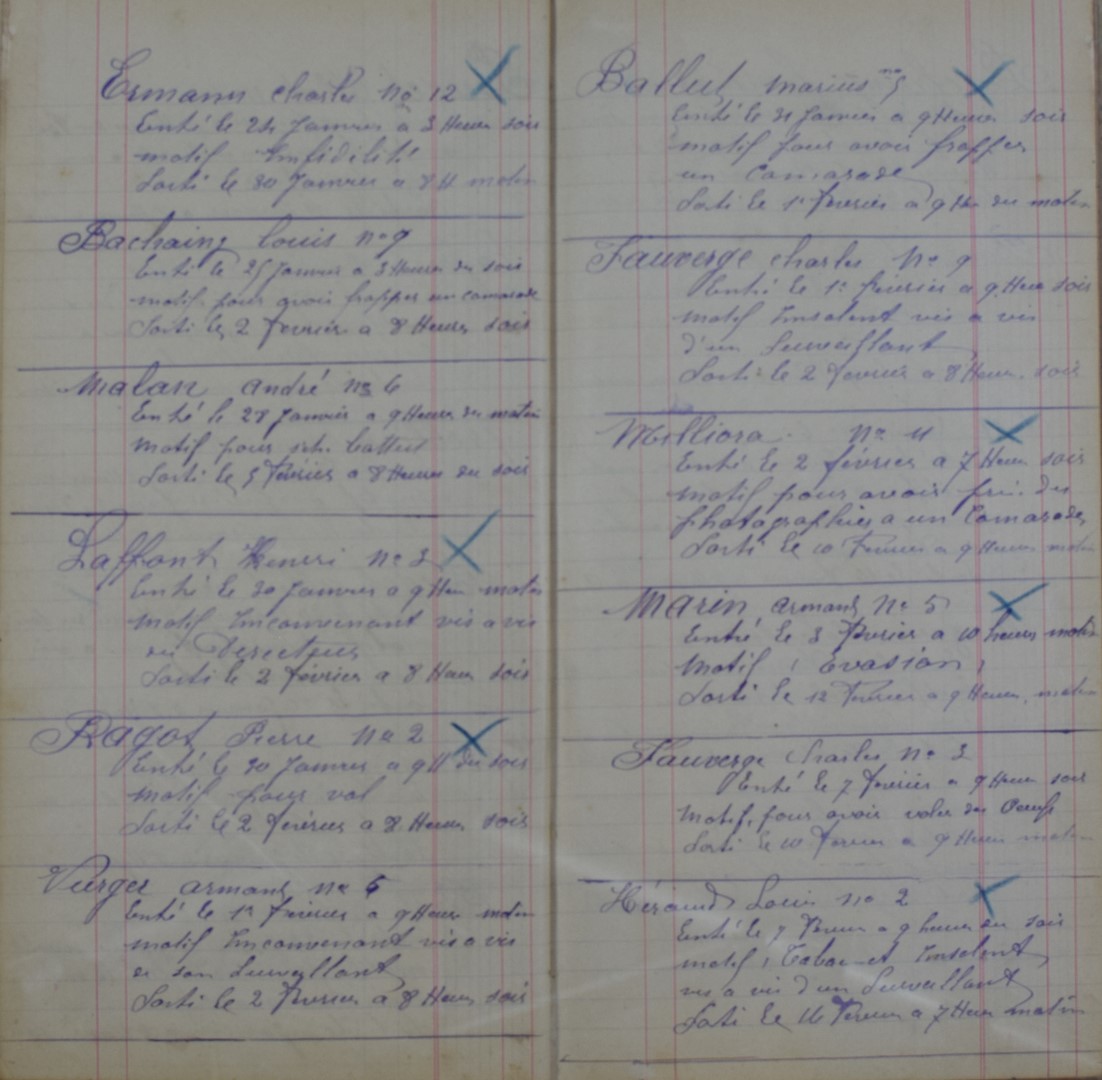 Ermann Charles no 12
Entré le 24 Janvier a 3 Heures soir
motif Imfidélité
Sorti le 30 Janvier a 8 H matin
Bachaing louis no 9
Entré le 25 Janvier a 3 Heures du soir
motif pour avoir frapper un camarade
Sorti le 2 Fevrier a 8 Heures soir
Malan andré no 6
Entré le 28 Janvier a 9 Heures du matin
Motif pour sete battut
Sorti le 5 Février a 8 Heures du soir
Laffont Henri no 3
Entré le 30 Janvier a 9 Heur matin
motif Inconvenant vis a vis
du Directeur
Sorti le 2 février a 8 Heures soir
Ragot Pierre no 2
Entré le 30 Janvier a 9 H du soir
Motif pour vol
Sorti le 2 Février a 8 Heures soir
armand no 6
Entré le 1er Février a 9 Heures matin
motif Inconvenant vis a vis
de son Surveillant
Sorti le 2 Fevrier a 8 Heures soir
Ballut marius no 5
Entré le 31 Janvier a 9 Heures soir
motif pour avoir frapper
un Camarade
Sorti le 1er Fevrier a 9 He du matin
Fauverge charles No 9
Entré le 1er février a 9 Heur soir
Motif Insolent vis a vis
d'un Surveillant
Sorti le 2 Fevrier a 8 Heur. soir
Milliora. No 11
Entré le 2 février a 7 Heur soir
motif pour avoir pris des
photographies a un Camarade
Sorti le 10 Fevrier a 9 Heures matin
Marin armand No 5
Entré le 3 Fevrier a 10 heures matin
Motif ; évasion ;
Sorti le 12 Fevrier a 9 Heures matin
Fauverge Charles no 3
Entré le 7 Fevrier a 9 Heur soir
Motif, pour avoir voler des Oeufs
Sorti le 10 Fevrier a 9 Heures matin
Héraud Louis no 2
Entré le 7 Fevrier a 9 heures du soir
motif ; Tabac et Insolent
vis a vis d'un Surveillant
Sorti le 16 Fevrier a 7 Heur matin